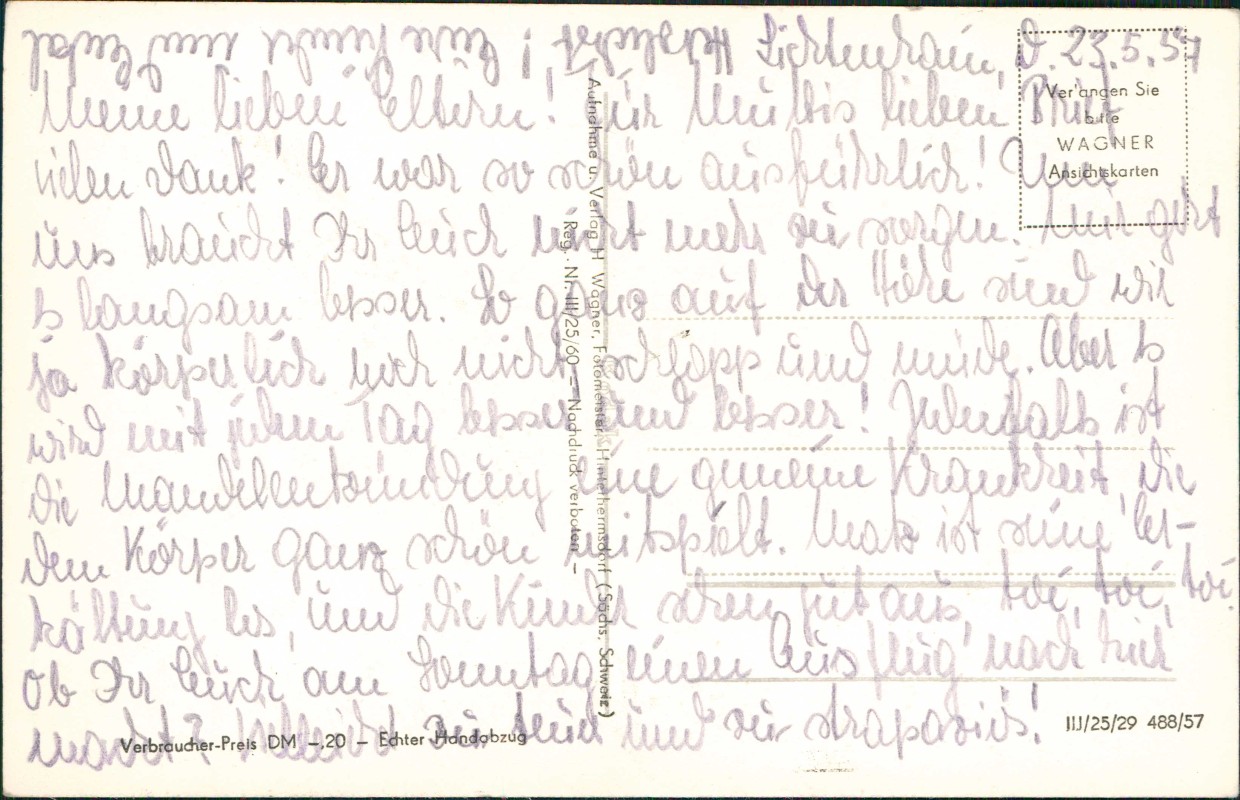 Lichtenhain, d. 23.5.57
Meine lieben Eltern! Für Muttis lieben Brief
vielen Dank! Er war so schön ausführlich! Um
uns braucht Ihr Euch nicht mehr zu sorgen. Mir geht
es langsam besser. So ganz auf der Höhe sind wir
ja körperlich noch nicht, schlapp und müde. Aber es
wird mit jedem Tag besser und besser! Jedenfalls ist
die Mandelentzündung eine gemeine Krankheit, die
dem Körper ganz schön mitspielt. ist seine Er-
kältung los, und die Kinder sehen gut aus, toi, toi, toi.
Ob Ihr Euch am Sonntag einen Ausflug nach hier
macht? Vielleicht zu und zu strapaziös!
Herzlichst! Eure Kinder und Enkel
Verlangen Sie
bitte
WAGNER
Ansichtskarten
Aufnahme u. Verlag H. Wagner, Fotomeister, Hinterhermsdorf (Sächs. Schweiz)
Reg.-Nr. III/25/60 – Nachdruck verboten –
Verbraucher-Preis DM –,20 – Echter Handabzug
III/25/29 488/57